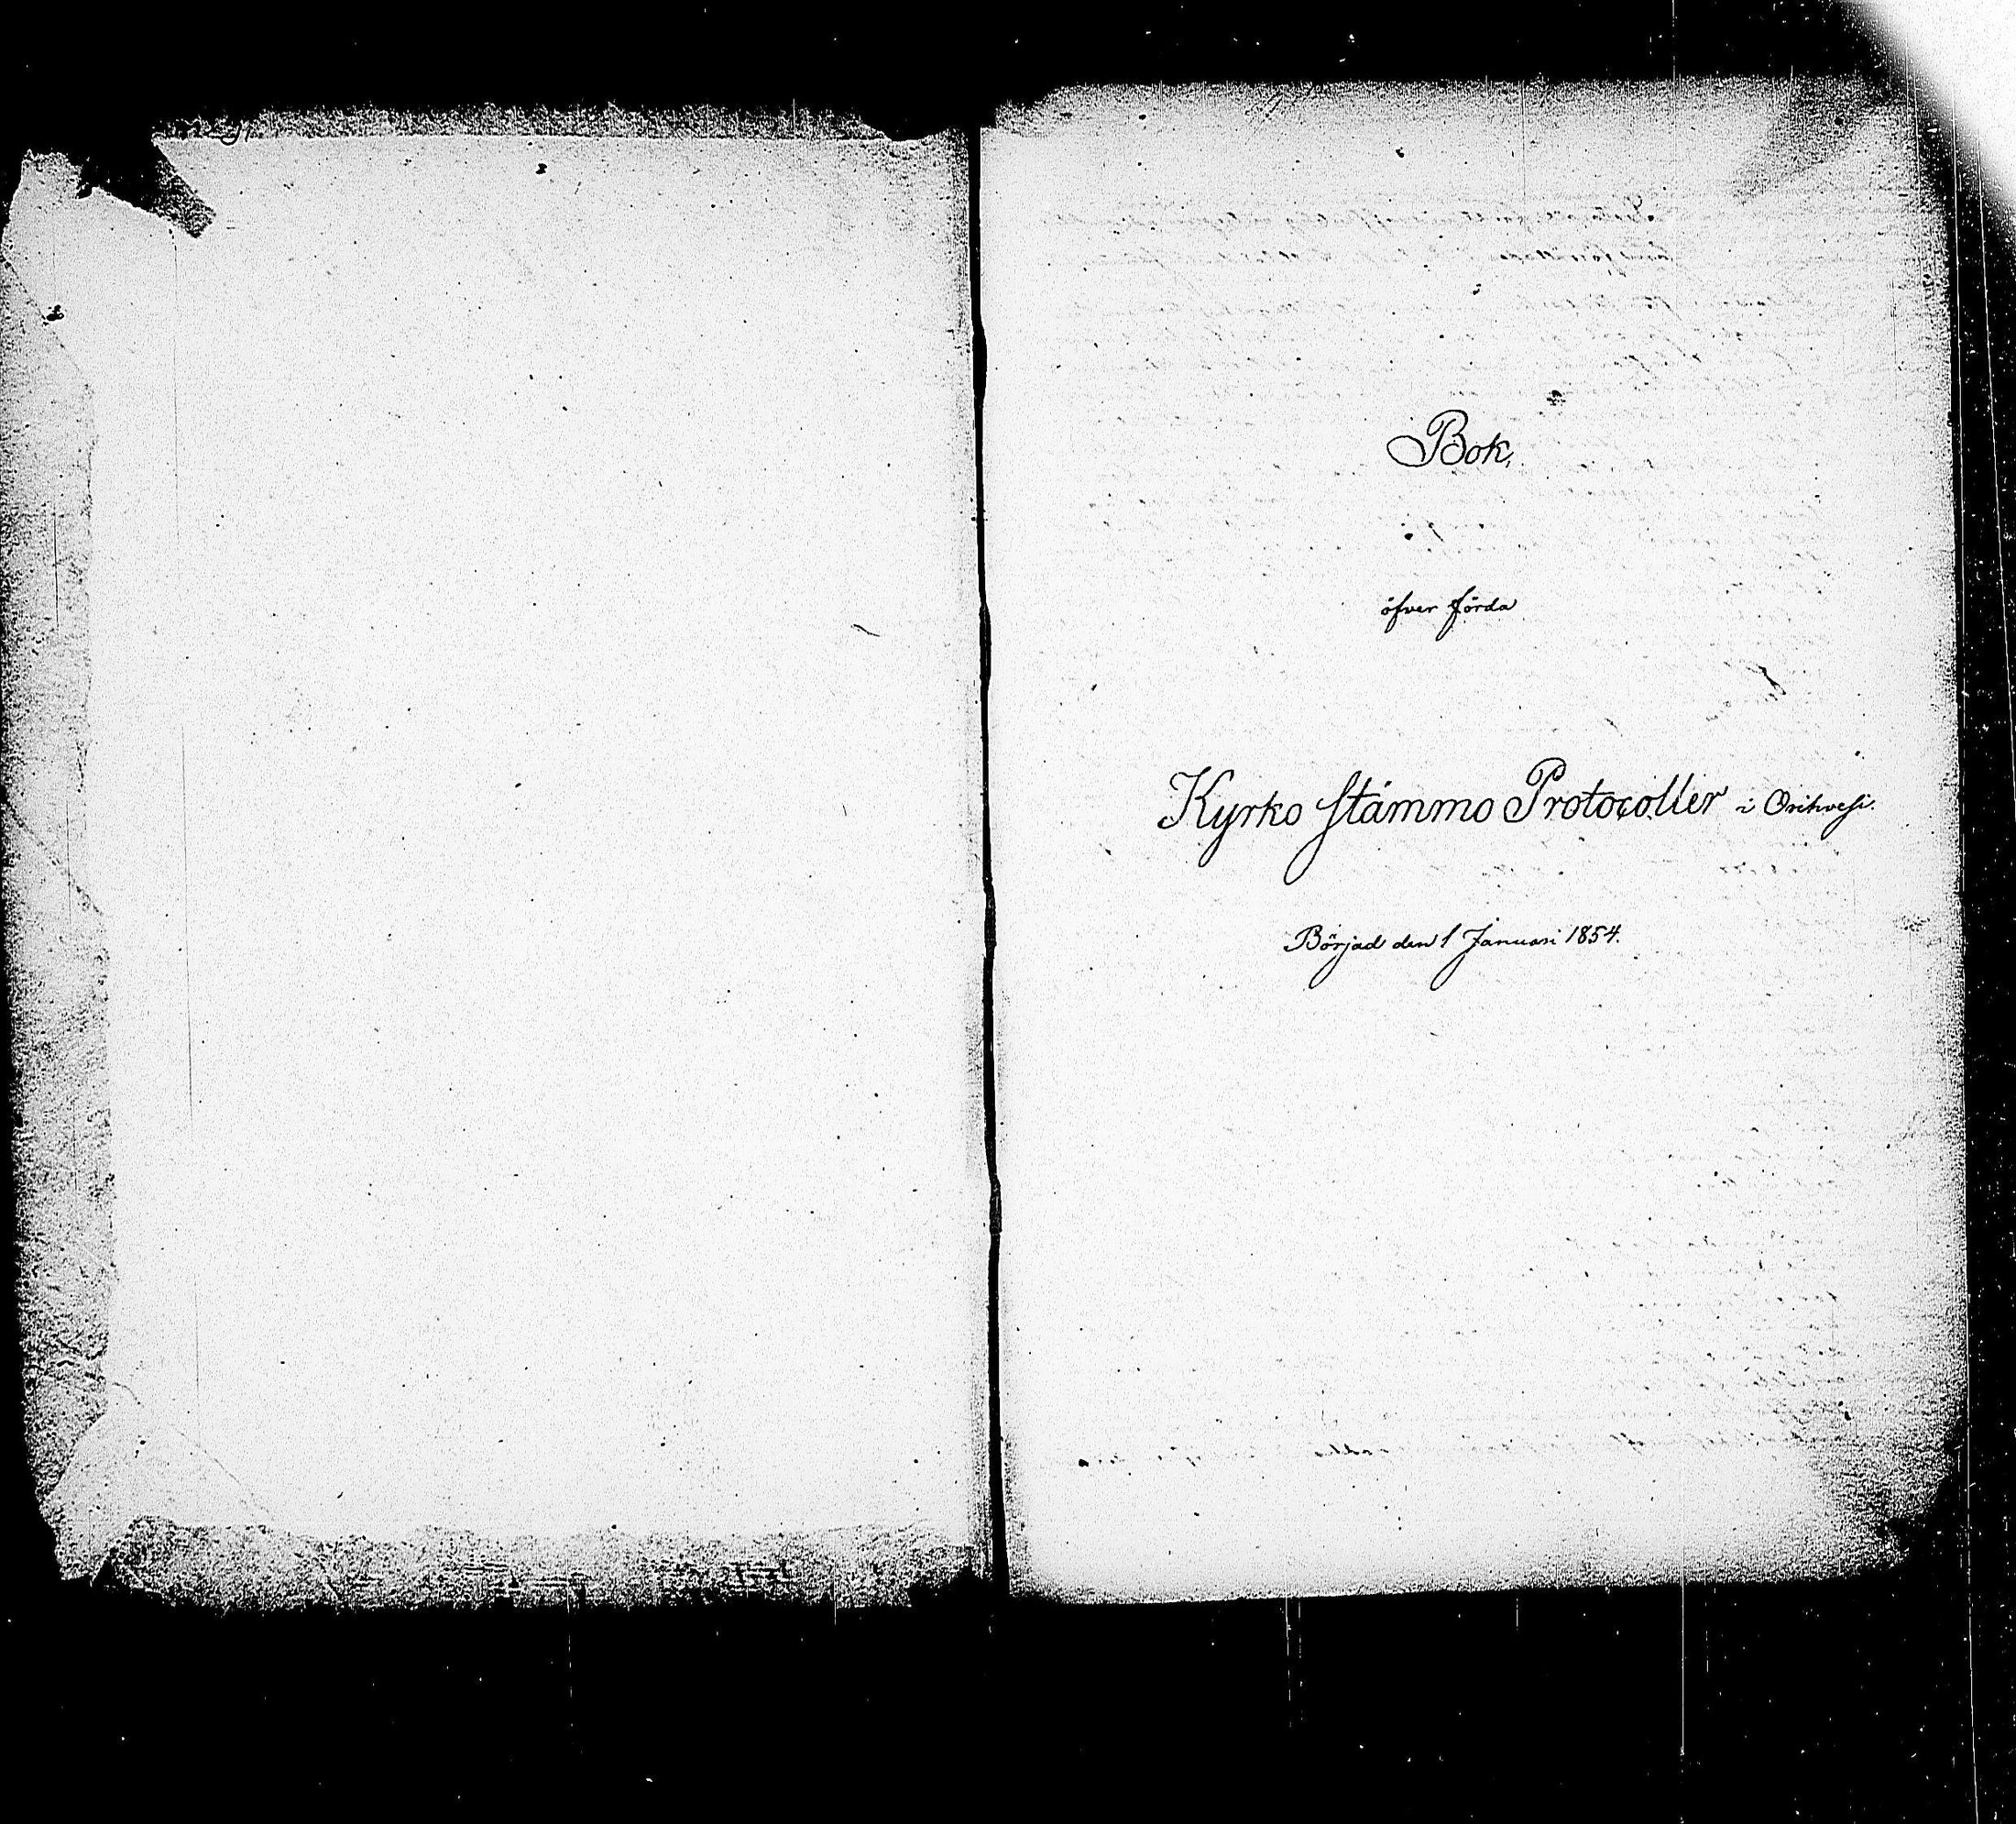 Bok,
öfver förda
Kyrko stämmo Protocoller i Orihvesi.
Börjad den 1 Januari 1854.